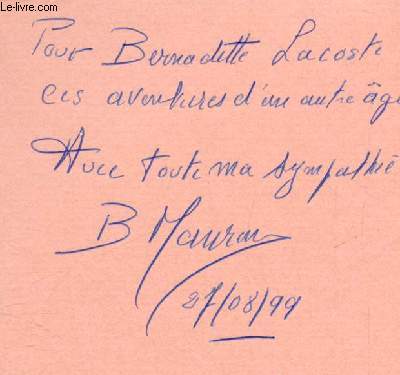 Le-livre.com
Pour Bernadette Lacoste
ces aventures d'un autre âge
Avec toute ma sympathie
B
27/08/99